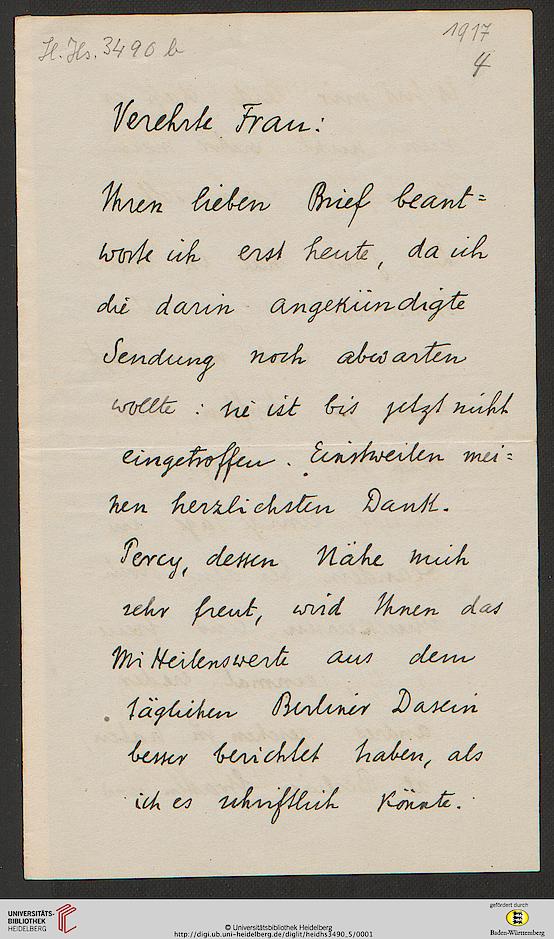 H. Hs. 3490 b
1917
4
Verehrte Frau:
Ihren lieben Brief beant=
worte ich erst heute, da ich
die darin angekündigte
Sendung noch abwarten
wollte : sie ist bis jetzt nicht
eingetroffen. Einstweilen mei=
nen herzlichsten Dank.
Percy, dessen Nähe mich
sehr freut, wird Ihnen das
Mitteilenswerte aus dem
täglichen Berliner Dasein
besser berichtet haben, als
ich es schriftlich könnte.
UNIVERSITÄTS-
BIBLIOTHEK
HEIDELBERG
© Universitätsbibliothek Heidelberg
http://digi.ub.uni-heidelberg.de/diglit/heidhs3490_5/0001
gefördert durch
Baden-Württemberg